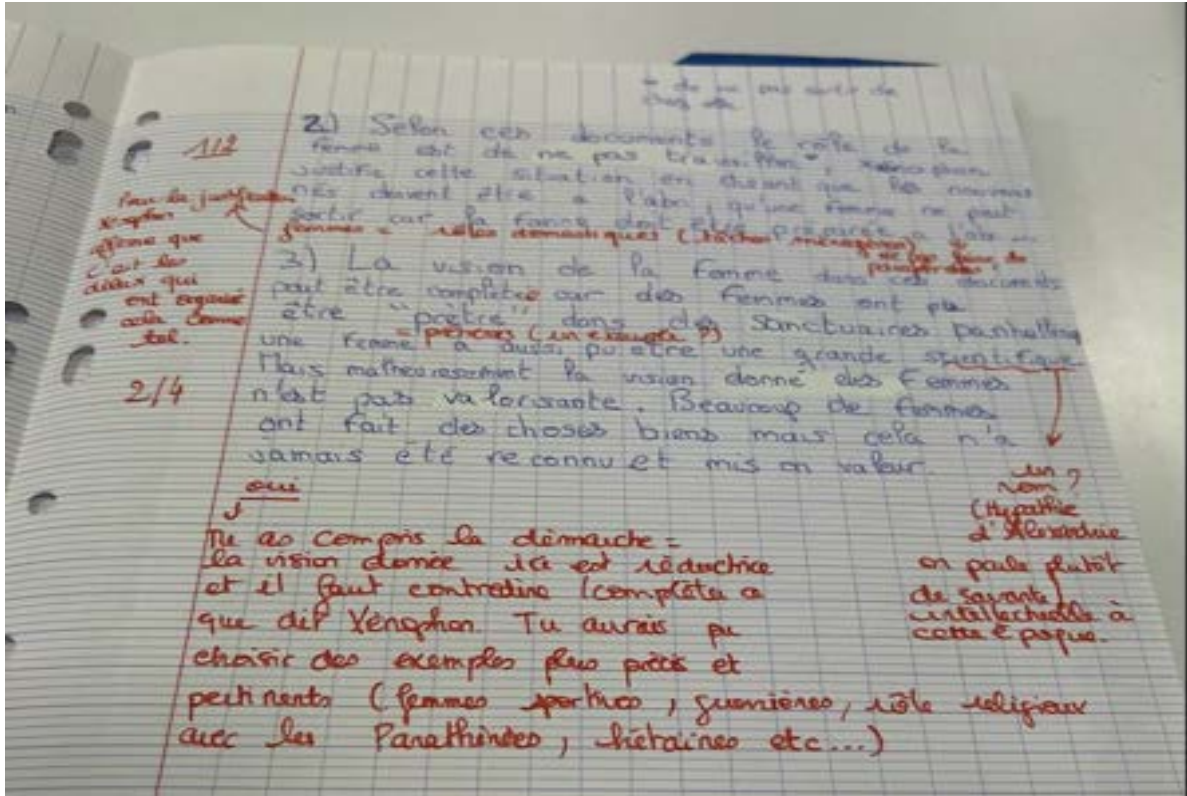 * de ne pas sortir de
chez elle
2.) Selon ces documents le rôle de la
femme est de ne pas travailler*, xénophon
justifie cette situation en disant que les nouveaux
nés doivent être à l'abri, qu'une femme ne peut
sortir car la femme doit être préparée à l'abri
1/2
Pour la justification
Xénophon
affirme que
c'est les
dieux qui
ont organisé
cela comme
tel.
femmes = rôles domestiques (tâches ménagères)
3) La vision de la femme dans ces documents
peut être complétée car des femmes ont pu
être "prêtre" dans des sanctuaires panhellén
= prêtresses (un exemple ?)
une femme a aussi pu être une grande scientifique
Mais malheuresement la vision donné des femmes
n'est pas valorisante. Beaucoup de femmes
ont fait des choses biens mais cela n'a
jamais été reconnu et mis en valeur.
2/4
un
nom ?
(Hypathie
d'Alexandrie
on parle plutôt
de savante /
intellectuelle à
cette époque.
oui
Tu as compris la démarche =
la vision donnée ici est réductrice
et il faut contredire / compléter ce
que dit Xénophon. Tu aurais pu
choisir des exemples plus précis et
pertinents (femmes sportives, guerrières, rôle religieux
avec les Panathénées, hétaïres etc...)